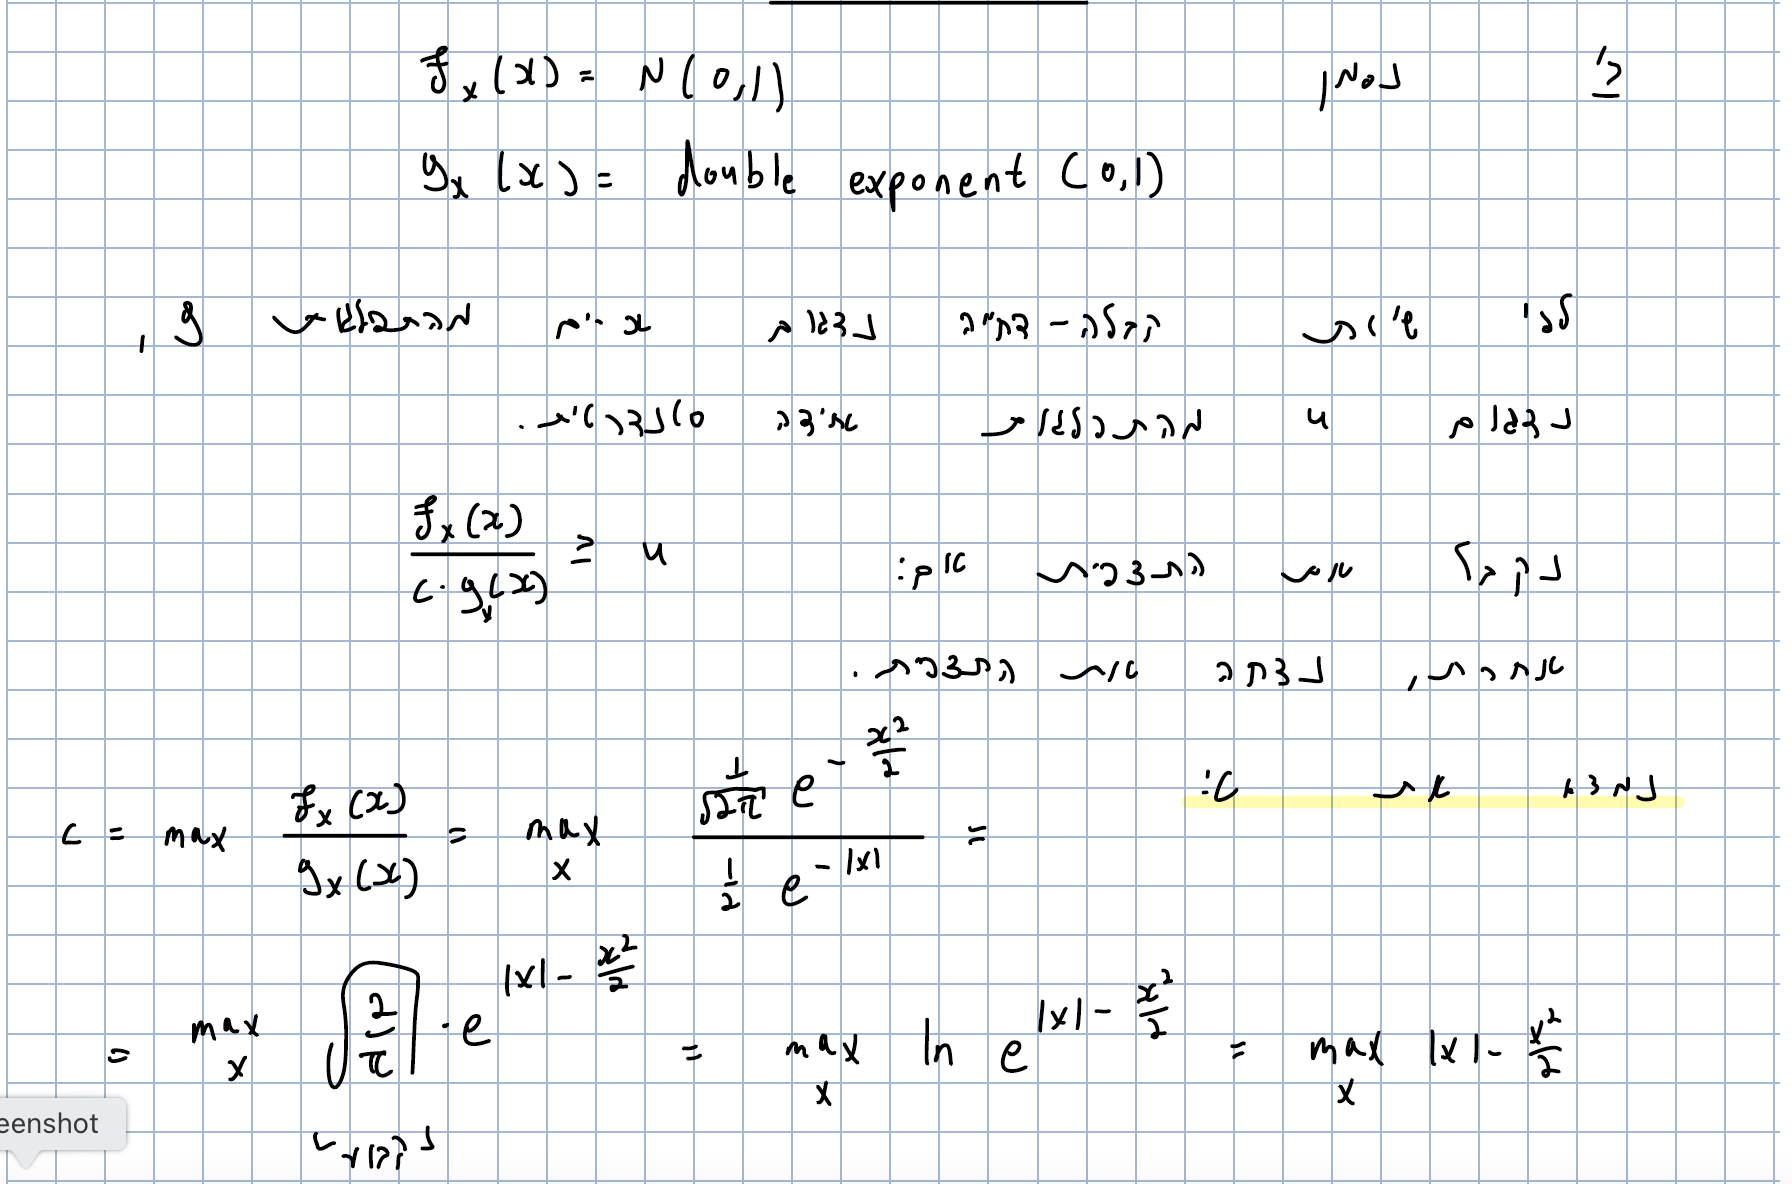 ב' נסמן f_x(x) = N(0,1)
g_x(x) = double exponent (0,1)
לפי שיטת קבלה-דחייה נדגום x-ים מהתפלגות g,
נדגום u מהתפלגות אחידה סטנדרטית.
נקבל את התצפית אם: f_x(x) / (c · g_x(x)) ≥ u
אחרת, נדחה את התצפית.
נמצא את c:
c = max f_x(x) / g_x(x) = max_x (1/√2π e^(-x²/2)) / (1/2 e^(-|x|)) =
= max_x √(2/π) · e^(|x| - x²/2) = max_x ln e^(|x| - x²/2) = max_x |x| - x²/2
eenshot